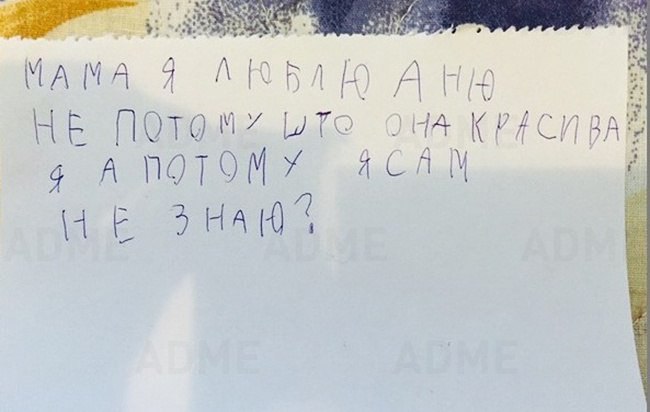 МАМА Я ЛЮБЛЮ АНЮ
НЕ ПОТОМУ ШТО ОНА КРАСИВА
Я А ПОТОМУ ЯСАМ
НЕ ЗНАЮ?
ADME
ADME
ADME
ADME
ADME
ADME